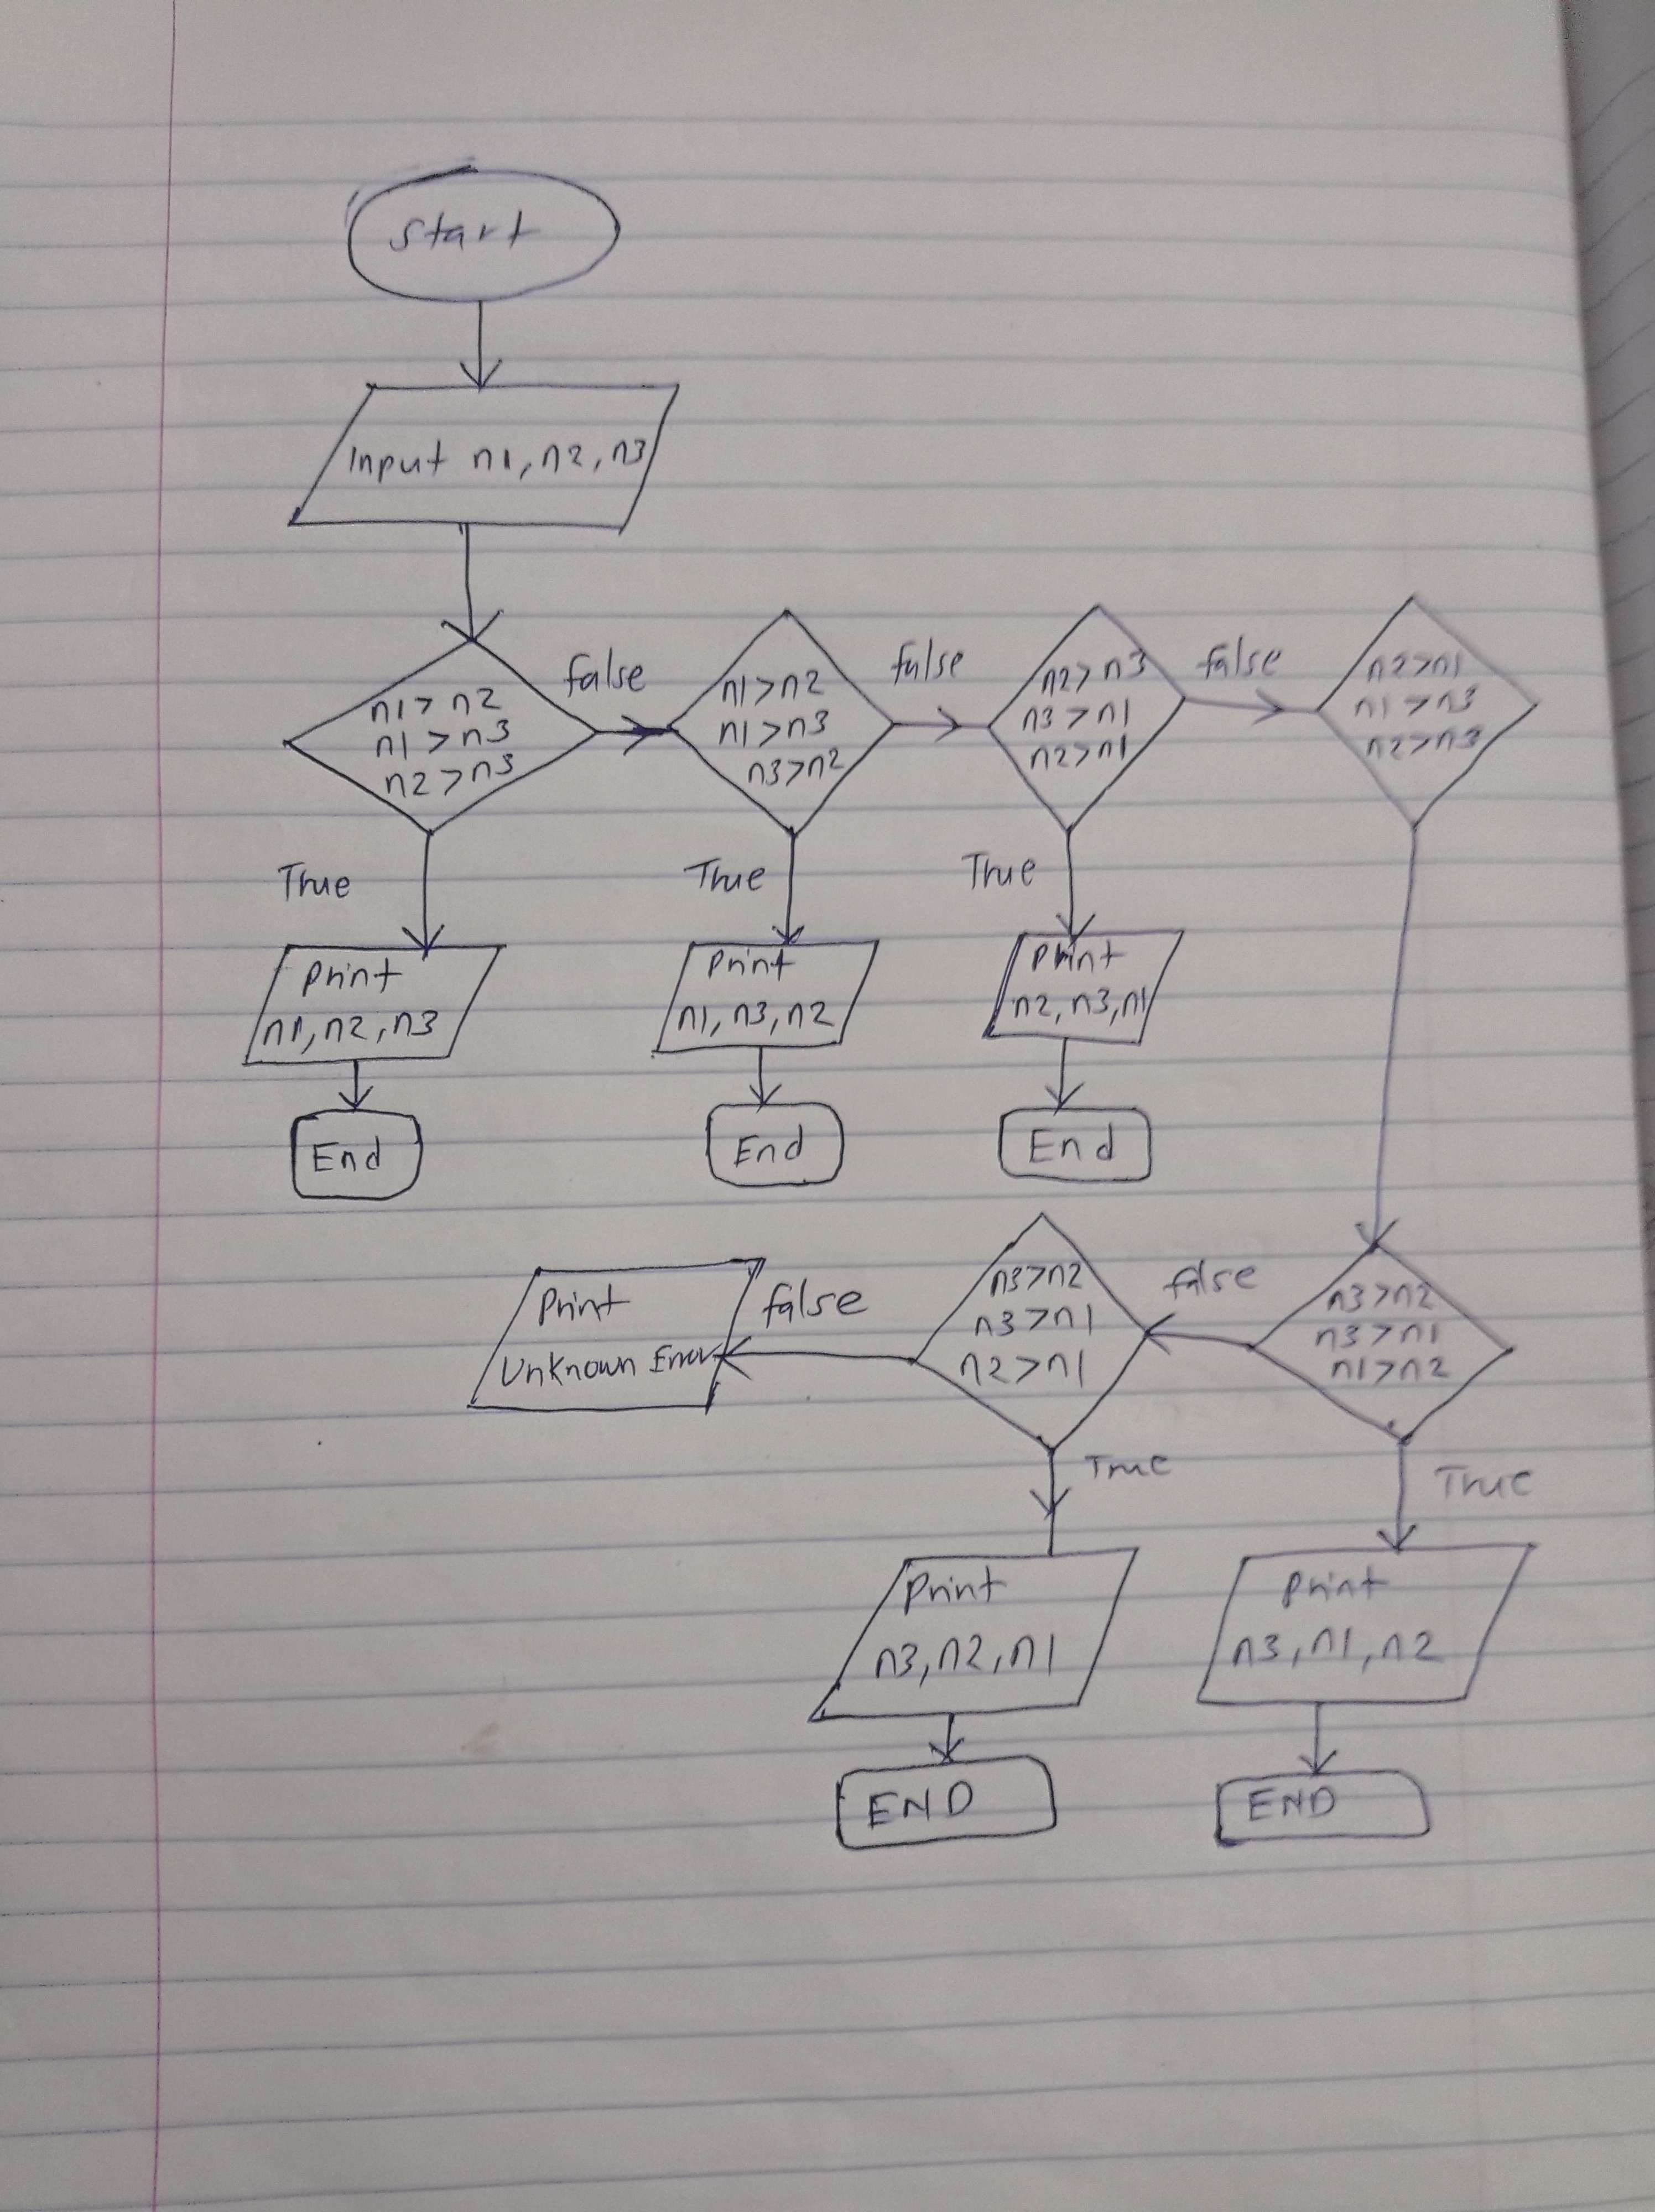 Start
Input n1, n2, n3
n1 > n2
n1 > n3
n2 > n3
false
n1 > n2
n1 > n3
n3 > n2
false
n2 > n3
n3 > n1
n2 > n1
false
n2 > n1
n1 > n3
n2 > n3
True
True
True
Print
n1, n2, n3
Print
n1, n3, n2
Print
n2, n3, n1
End
End
End
Print
Unknown Error
false
n3 > n2
n3 > n1
n2 > n1
false
n3 > n2
n3 > n1
n1 > n2
True
True
Print
n3, n2, n1
Print
n3, n1, n2
END
END